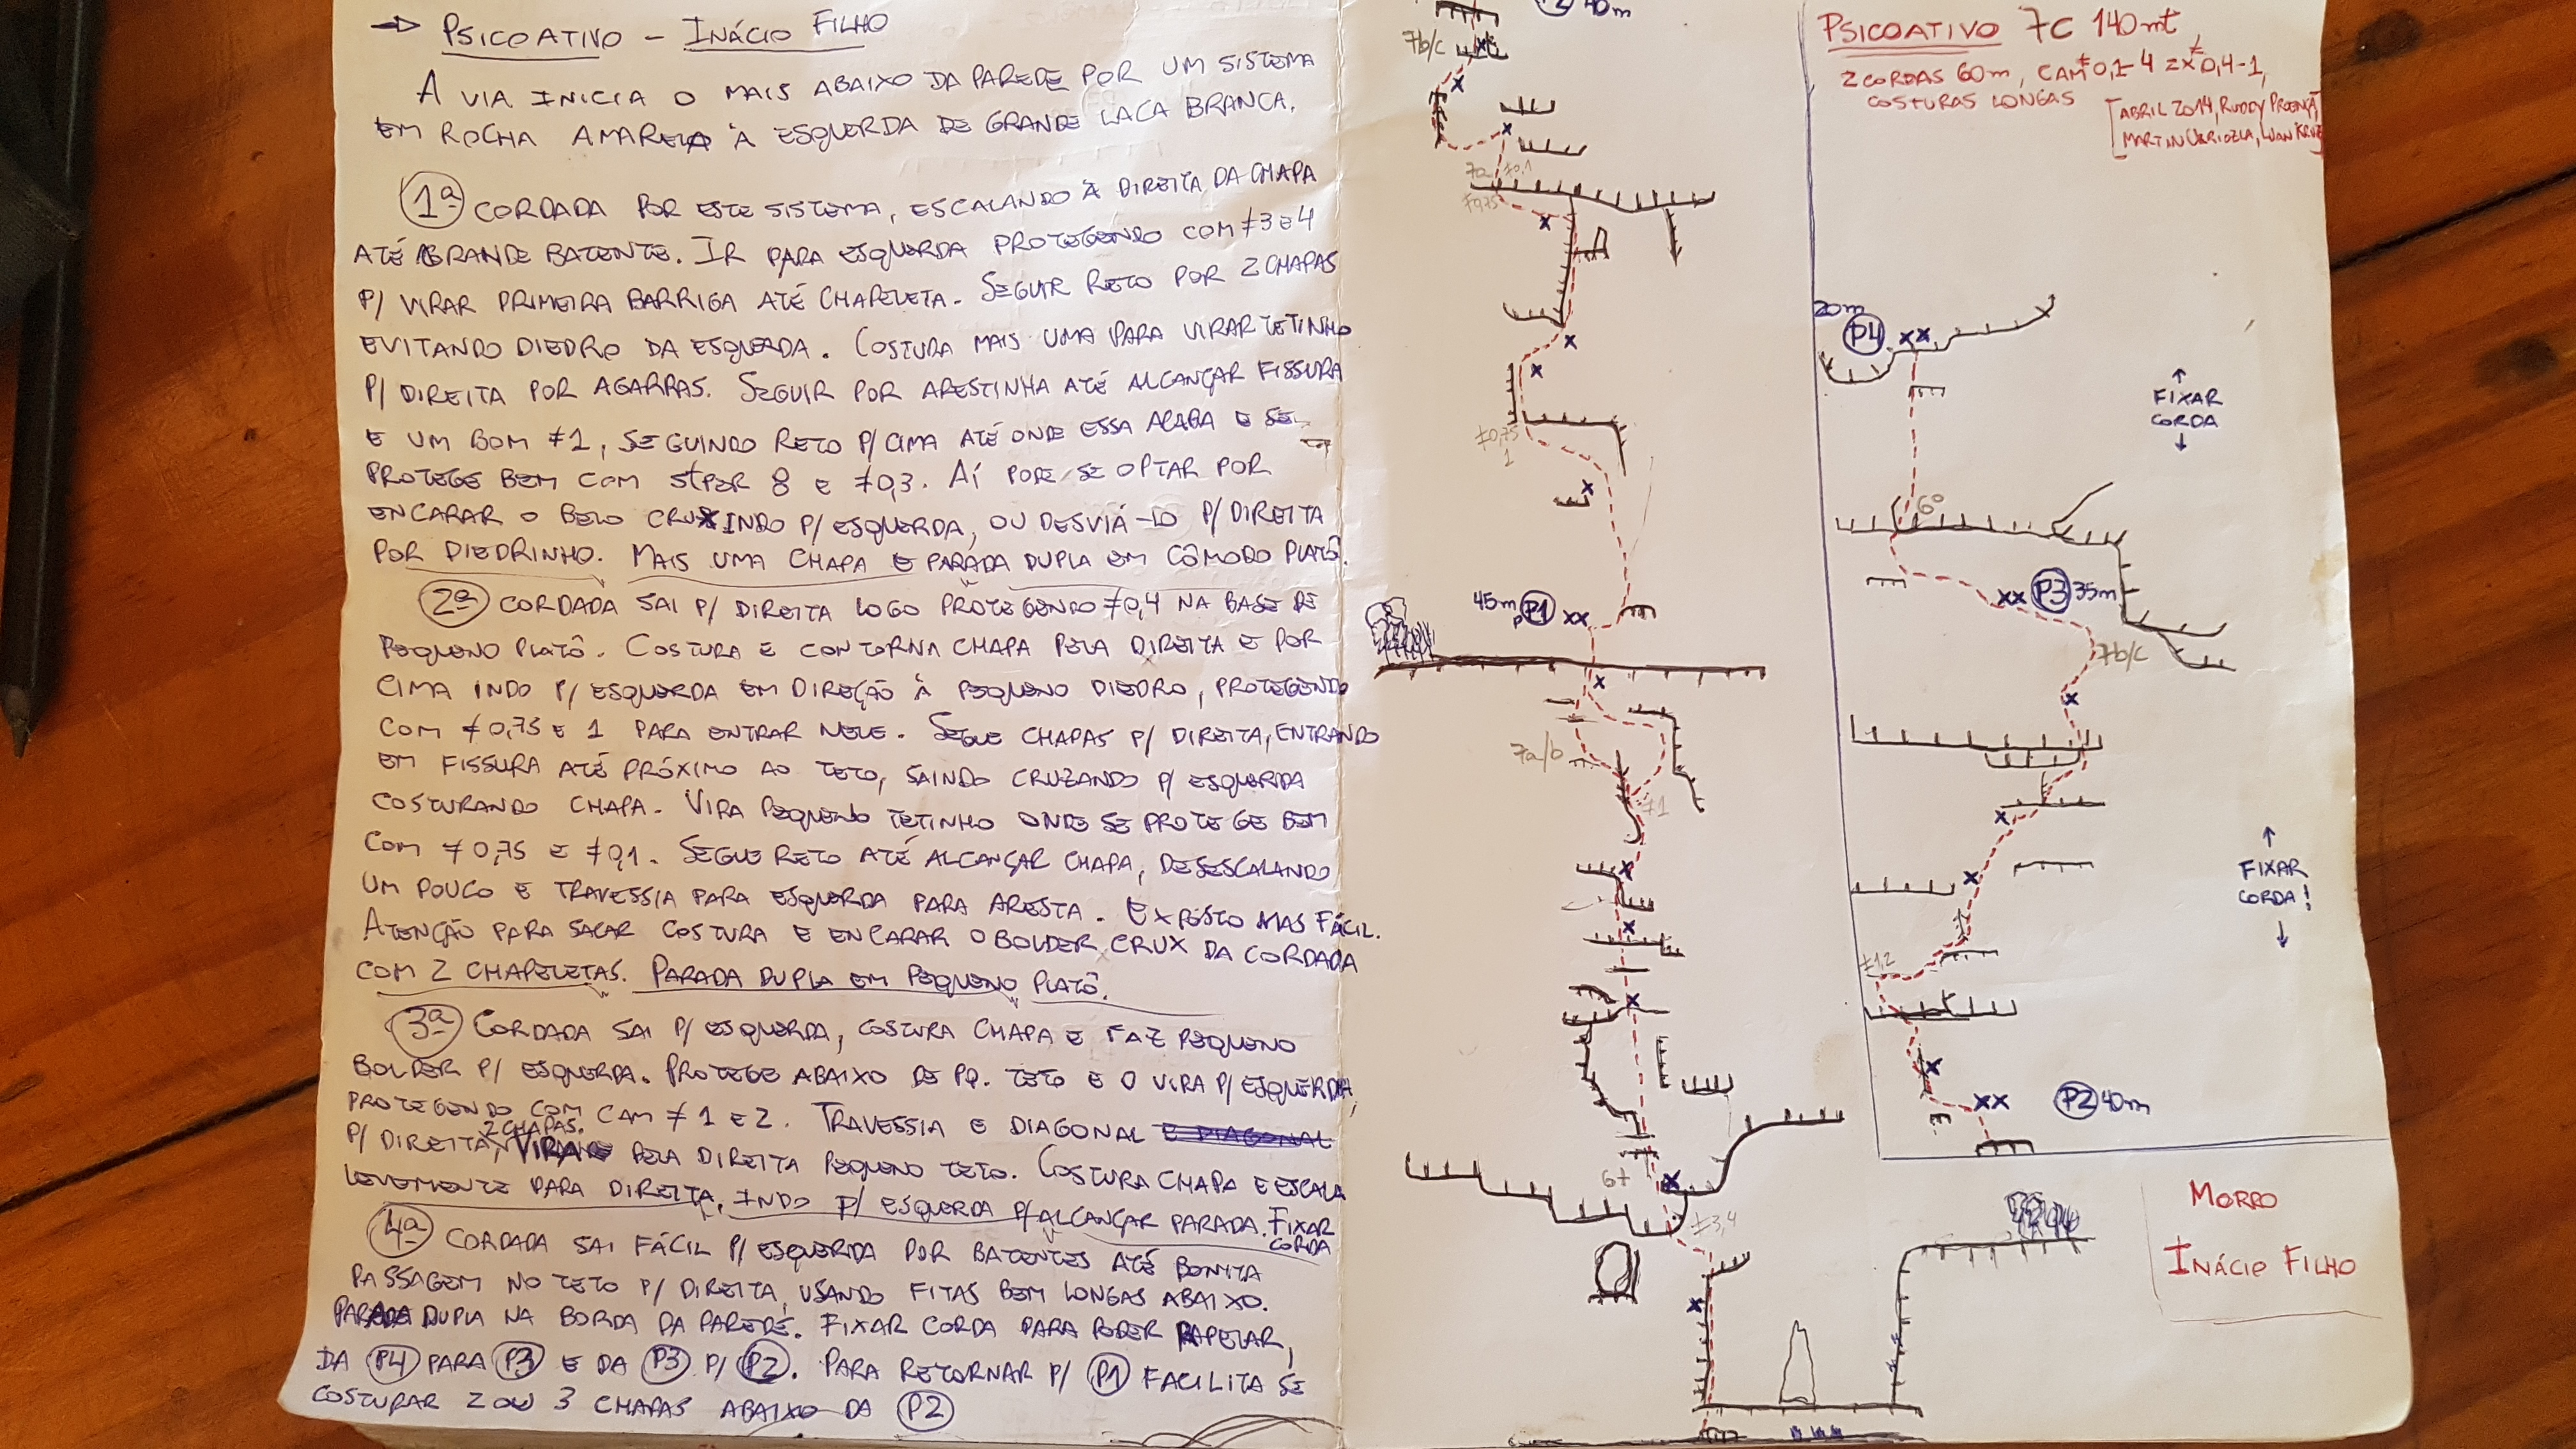 → PSICOATIVO - INÁCIO FILHO
A VIA INICIA O MAIS ABAIXO DA PAREDE POR UM SISTEMA
EM ROCHA AMARELA À ESQUERDA DE GRANDE LACA BRANCA.
1ª CORDADA POR ESTE SISTEMA, ESCALANDO À DIREITA DA CHAPA
ATÉ GRANDE BATENTE. IR PARA ESQUERDA PROTEGENDO COM #3 e 4
P/ VIRAR PRIMEIRA BARRIGA ATÉ CHAPELETA. SEGUIR RETO POR 2 CHAPAS
EVITANDO DIEDRO DA ESQUERDA. COSTURA MAIS UMA PARA VIRAR TETINHO
P/ DIREITA POR AGARRAS. SEGUIR POR ARESTINHA ATÉ ALCANÇAR FISSURA
E UM BOM #1, SEGUINDO RETO P/ CIMA ATÉ ONDE ESSA ACABA E SE
PROTEGE BEM COM stper 8 e #0,3. AÍ PODE SE OPTAR POR
ENCARAR O BELO CRUX INDO P/ ESQUERDA, OU DESVIÁ-LO P/ DIREITA
POR DIEDRINHO. MAIS UMA CHAPA E PARADA DUPLA EM CÔMODO PLATÔ.
2ª CORDADA SAI P/ DIREITA LOGO PROTEGENDO #0,4 NA BASE DE
PEQUENO PLATÔ. COSTURA E CONTORNA CHAPA PELA DIREITA E POR
CIMA INDO P/ ESQUERDA EM DIREÇÃO À PEQUENO DIEDRO, PROTEGENDO
COM #0,75 E 1 PARA ENTRAR NELE. SEGUE CHAPAS P/ DIREITA, ENTRANDO
EM FISSURA ATÉ PRÓXIMO AO TETO, SAINDO CRUZANDO P/ ESQUERDA
COSTURANDO CHAPA. VIRA PEQUENO TETINHO ONDE SE PROTEGE BEM
COM #0,75 E #0,1. SEGUE RETO ATÉ ALCANÇAR CHAPA, DESESCALANDO
UM POUCO E TRAVESSIA PARA ESQUERDA PARA ARESTA. EXPOSTO MAS FÁCIL.
ATENÇÃO PARA SACAR COSTURA E ENCARAR O BOLDER CRUX DA CORDADA
COM 2 CHAPELETAS. PARADA DUPLA EM PEQUENO PLATÔ.
3ª CORDADA SAI P/ ESQUERDA, COSTURA CHAPA E FAZ PEQUENO
BOLDER P/ ESQUERDA. PROTEGE ABAIXO DE PQ. TETO E O VIRA P/ ESQUERDA,
PROTEGENDO COM CAM #1 E 2. TRAVESSIA E DIAGONAL E DIAGONAL
P/ DIREITA, 2 CHAPAS. VIRA PELA DIREITA PEQUENO TETO. COSTURA CHAPA E ESCALA
LEVEMENTE PARA DIREITA, INDO P/ ESQUERDA P/ ALCANÇAR PARADA. FIXAR CORDA
4ª CORDADA SAI FÁCIL P/ ESQUERDA POR BATENTES ATÉ BONITA
PASSAGEM NO TETO P/ DIREITA, USANDO FITAS BEM LONGAS ABAIXO.
PARADA DUPLA NA BORDA DA PAREDE. FIXAR CORDA PARA PODER RAPELAR,
DA P4 PARA P3 E DA P3 P/ P2. PARA RETORNAR P/ P1 FACILITA SE
COSTURAR 2 OU 3 CHAPAS ABAIXO DA P2
P2 40m
7b/c
7a #0,1
#0,75
#0,75
1
45m P1
7a/b
#1
6+
#3,4
PSICOATIVO 7C 140mt
2 CORDAS 60m, CAM #0,1-4 2x #0,4-1,
COSTURAS LONGAS
[ABRIL 2014, RUDDY PROENÇA,
MARTIN URRIOZLA, WAN KRUZ]
20m
P4
↑
FIXAR
CORDA
↓
6º
P3 35m
7b/c
↑
FIXAR
CORDA!
↓
#1,2
P2 40m
MORRO
INÁCIO FILHO